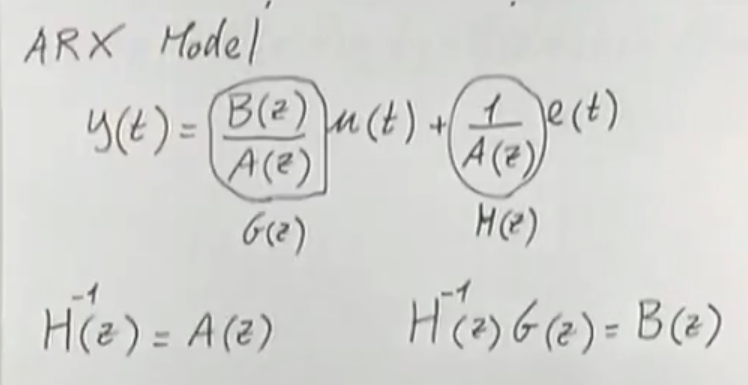 ARX Model
y(t) = B(z)/A(z) u(t) + 1/A(z) e(t)
G(z) H(z)
H⁻¹(z) = A(z) H⁻¹(z) G(z) = B(z)